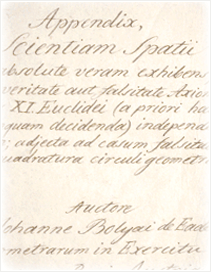 Appendix,
Scientiam Spatii
absolute veram exhibens
veritate aut falsitate Axiom
XI. Euclidei (a priori ha
quam decidenda) indepen
; adjecta ad casum falsita
quadratura circuli geometri
Auctore
Johanne Bolyai de Ead
metrarum in Exercitu